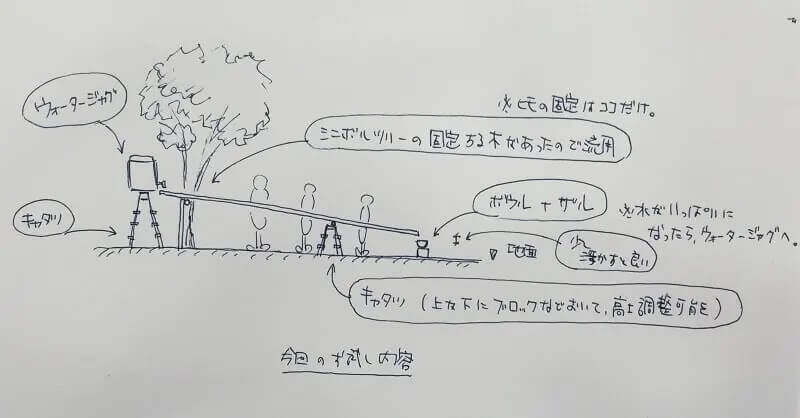 ウォータージャグ
※ヒモの固定はココだけ。
ミニボルツリーの固定する木があったので流用
キャタツ
ボウル + ザル
※水がいっぱいに
なったら、ウォータージャグへ。
地面
少し
浮かすと良い
キャタツ (上や下にブロックなどおいて、高さ調整可能を)
今回のお試し内容